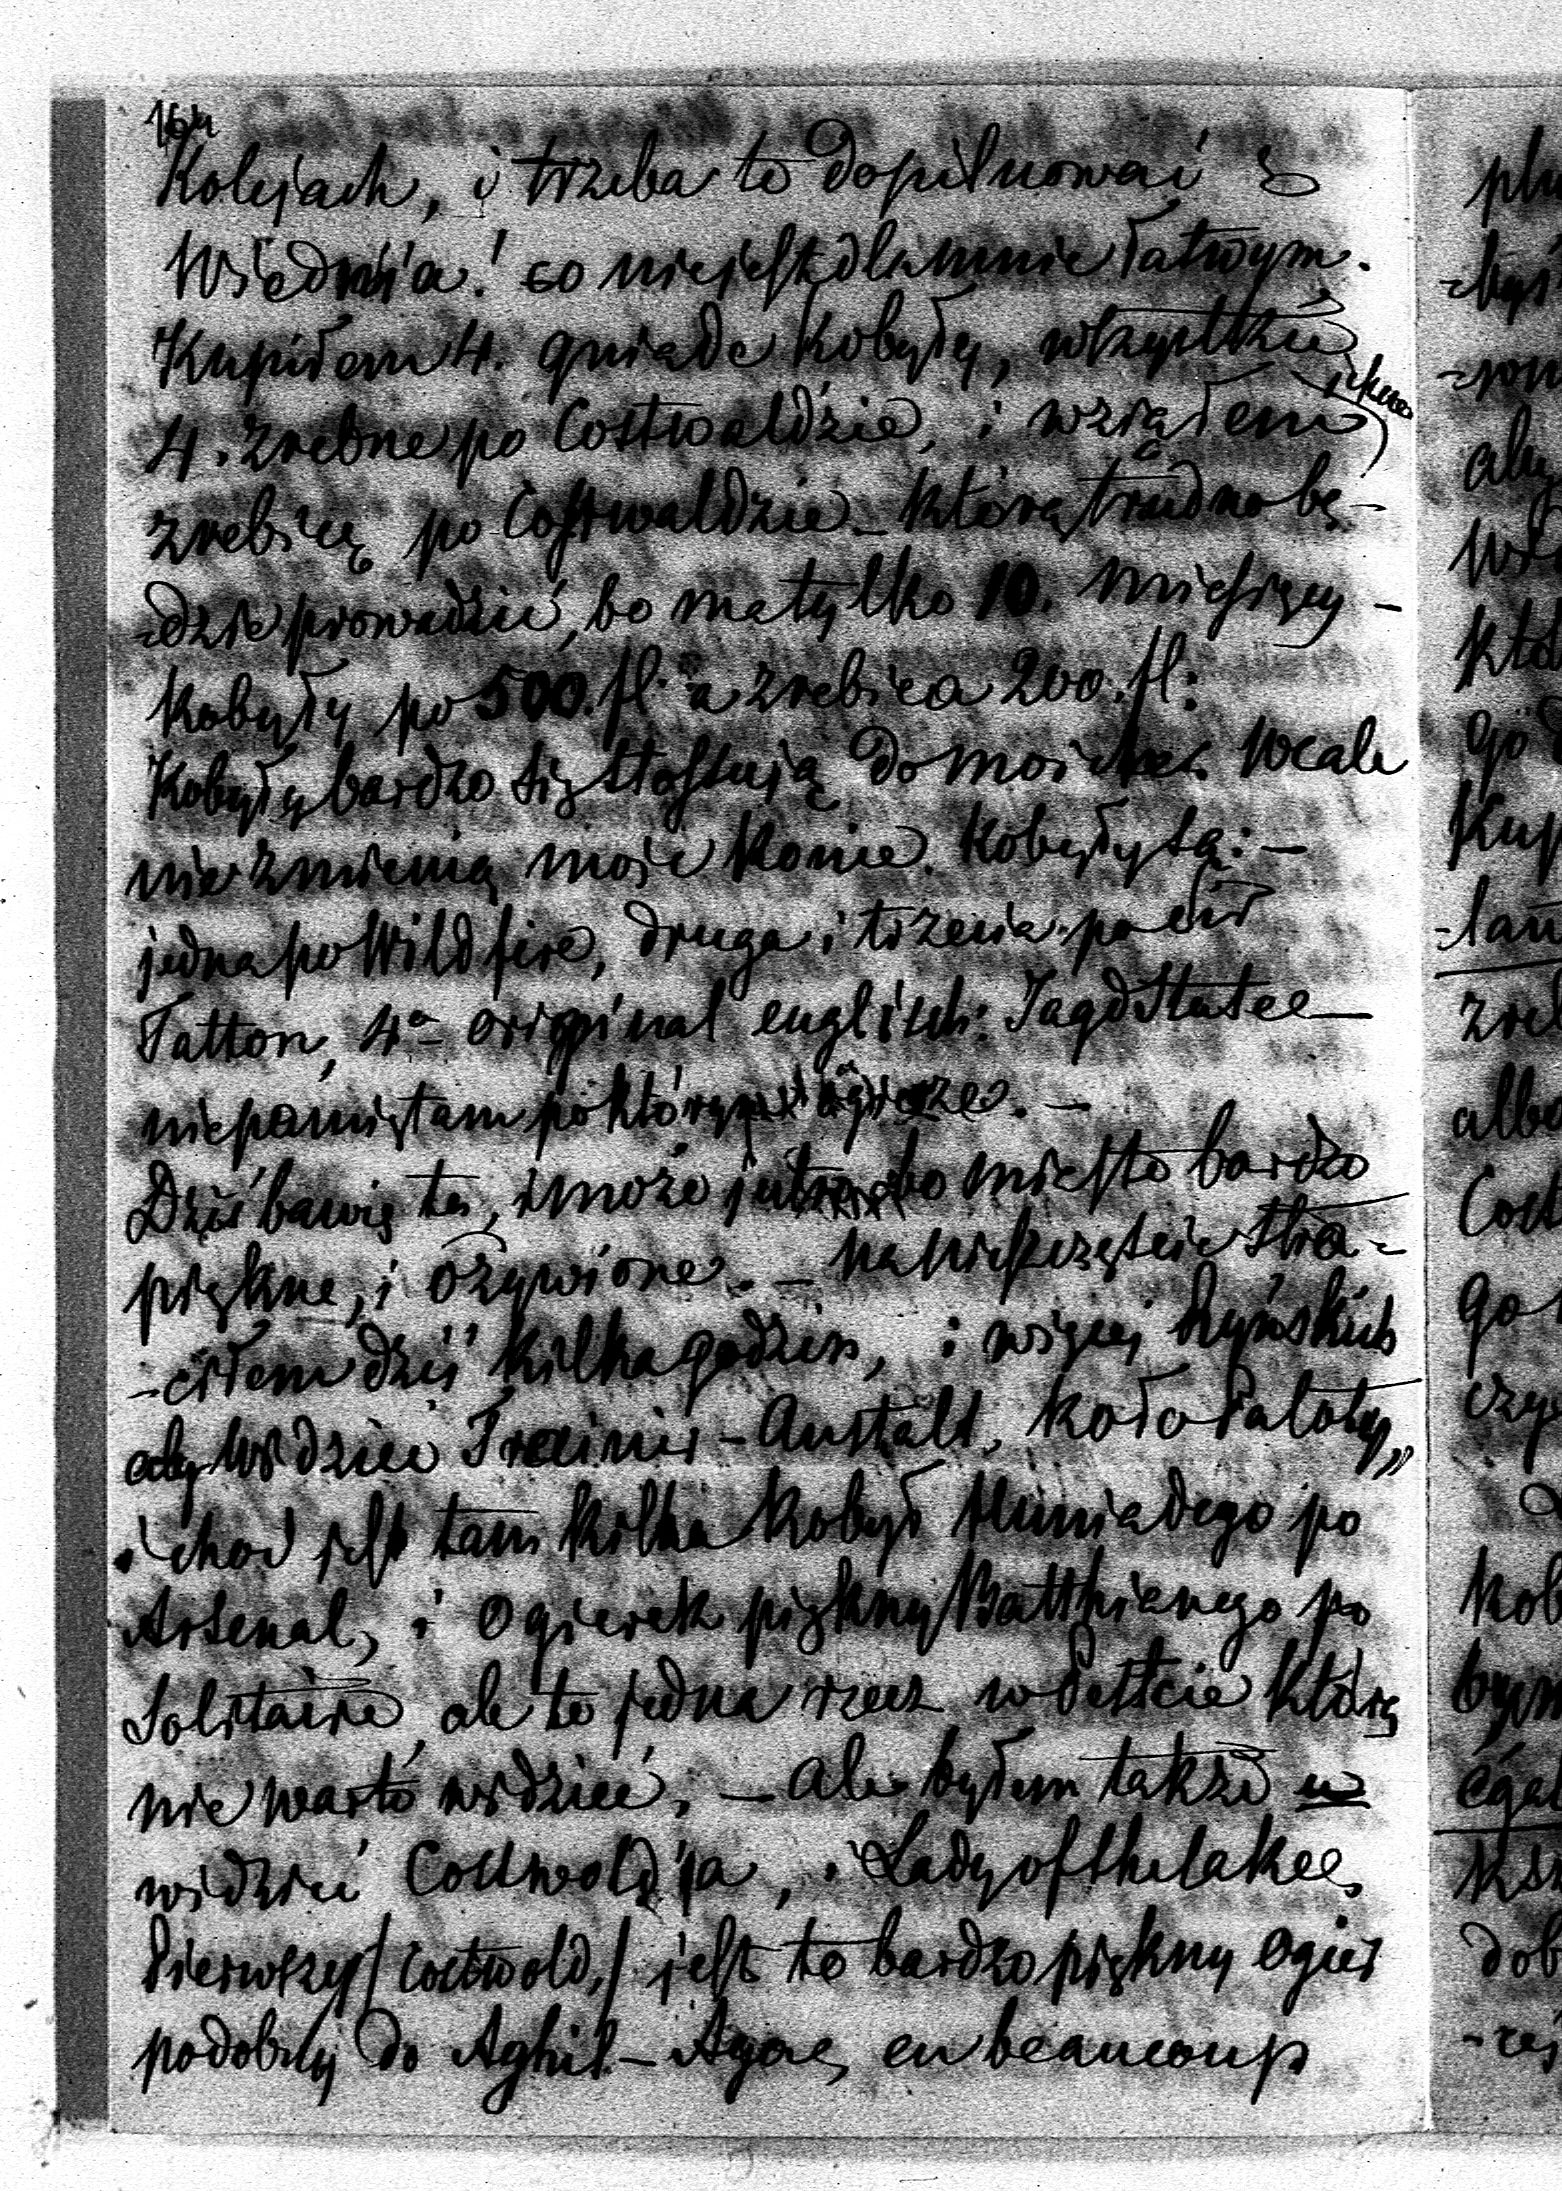 164
Kolejach, i trzeba to dopilnować z
Wiednia! co niejest dlamnie łatwym.
Kupiłem 4. gniade Kobyły, wszystkie
4. zrebne po Costwoldzie, i wziąłem
zrebicę po Costwaldzie - którą trudno bę-
-dzie prowadzić, bo matylko 10. miesięcy -
Kobyły po 500. fl. a zrebica 200. fl:
Kobyły bardzo się stosują do moich Wcale
nie zmienią moje Konie. Kobyły są: -
jedna po Wildfire, druga i trzecia po
Tatton, 4a original englisch: Jagdstutte -
niepamiętam po którym ogierze. -
Dziś bawię tu, i może jutro bo miasto bardzo
piękne, i ożywione. - na nieszczęście stra-
-ciłem dziś kilka godzin, i więcej Ryńskich
aby widzieć Trainir-Anstalt, koło Palota,,
i choć jest tam kilka Kobył Huniadego po
Arsenal, i Ogierek piękny Batthianego po
Solitaire, ale to jedna rzecz w Peszcie którą
nie warto widzieć, - ale byłem także w
widzieć Costwold'ja, i Lady of the lakee,
Pierwszy / Costwold, / jest to bardzo piękny Ogier
podobny do Aghil-Agae, en beaucoup